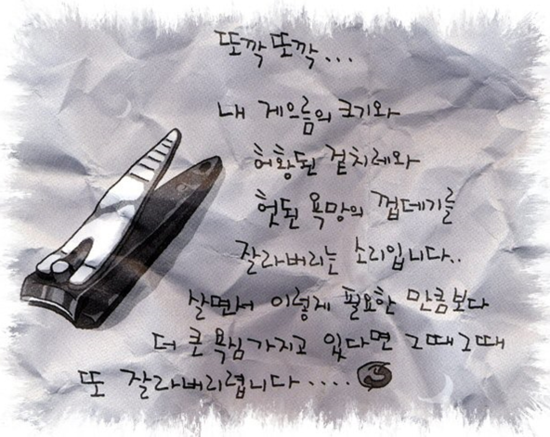 또깍 또깍...
내 게으름의 크기와
허황된 겉치레와
헛된 욕망의 껍데기를
잘라버리는 소리입니다..
살면서 이렇게 필요한 만큼보다
더 큰 욕심 가지고 있다면 그때그때
또 잘라버리렵니다.....